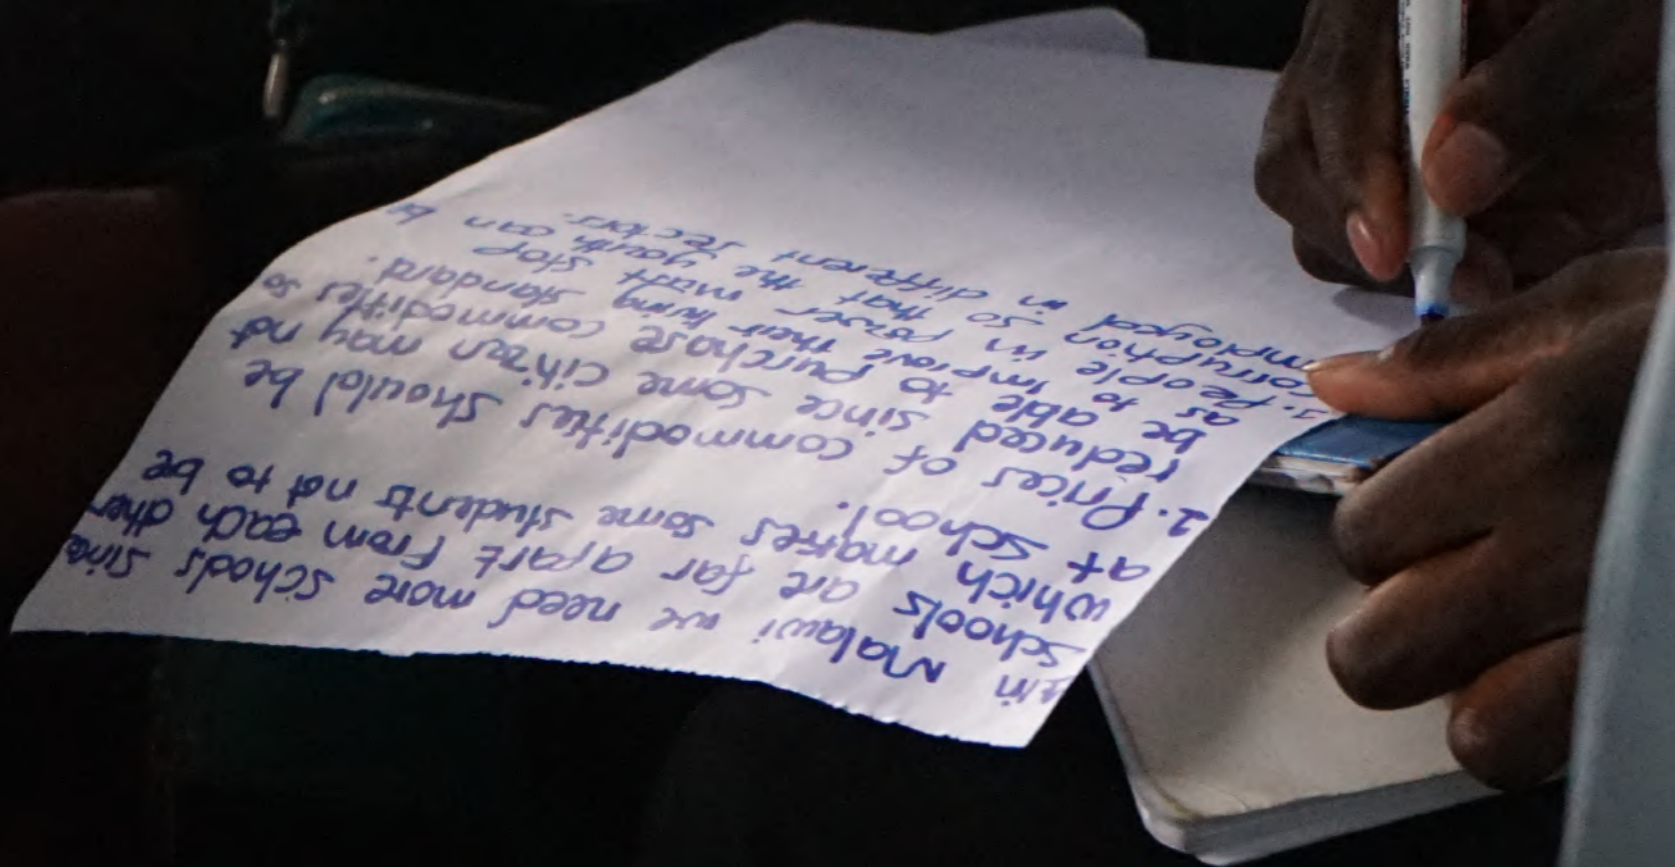 1. In Malawi we need more schools since
schools are far apart from each other
which makes some students not to be
at school.
2. Prices of commodities should be
reduced since some citizen may not
be able to purchase commodities so
as to improve their living standard.
3. People in power must stop
corruption so that the youth can be
employed in different sectors.